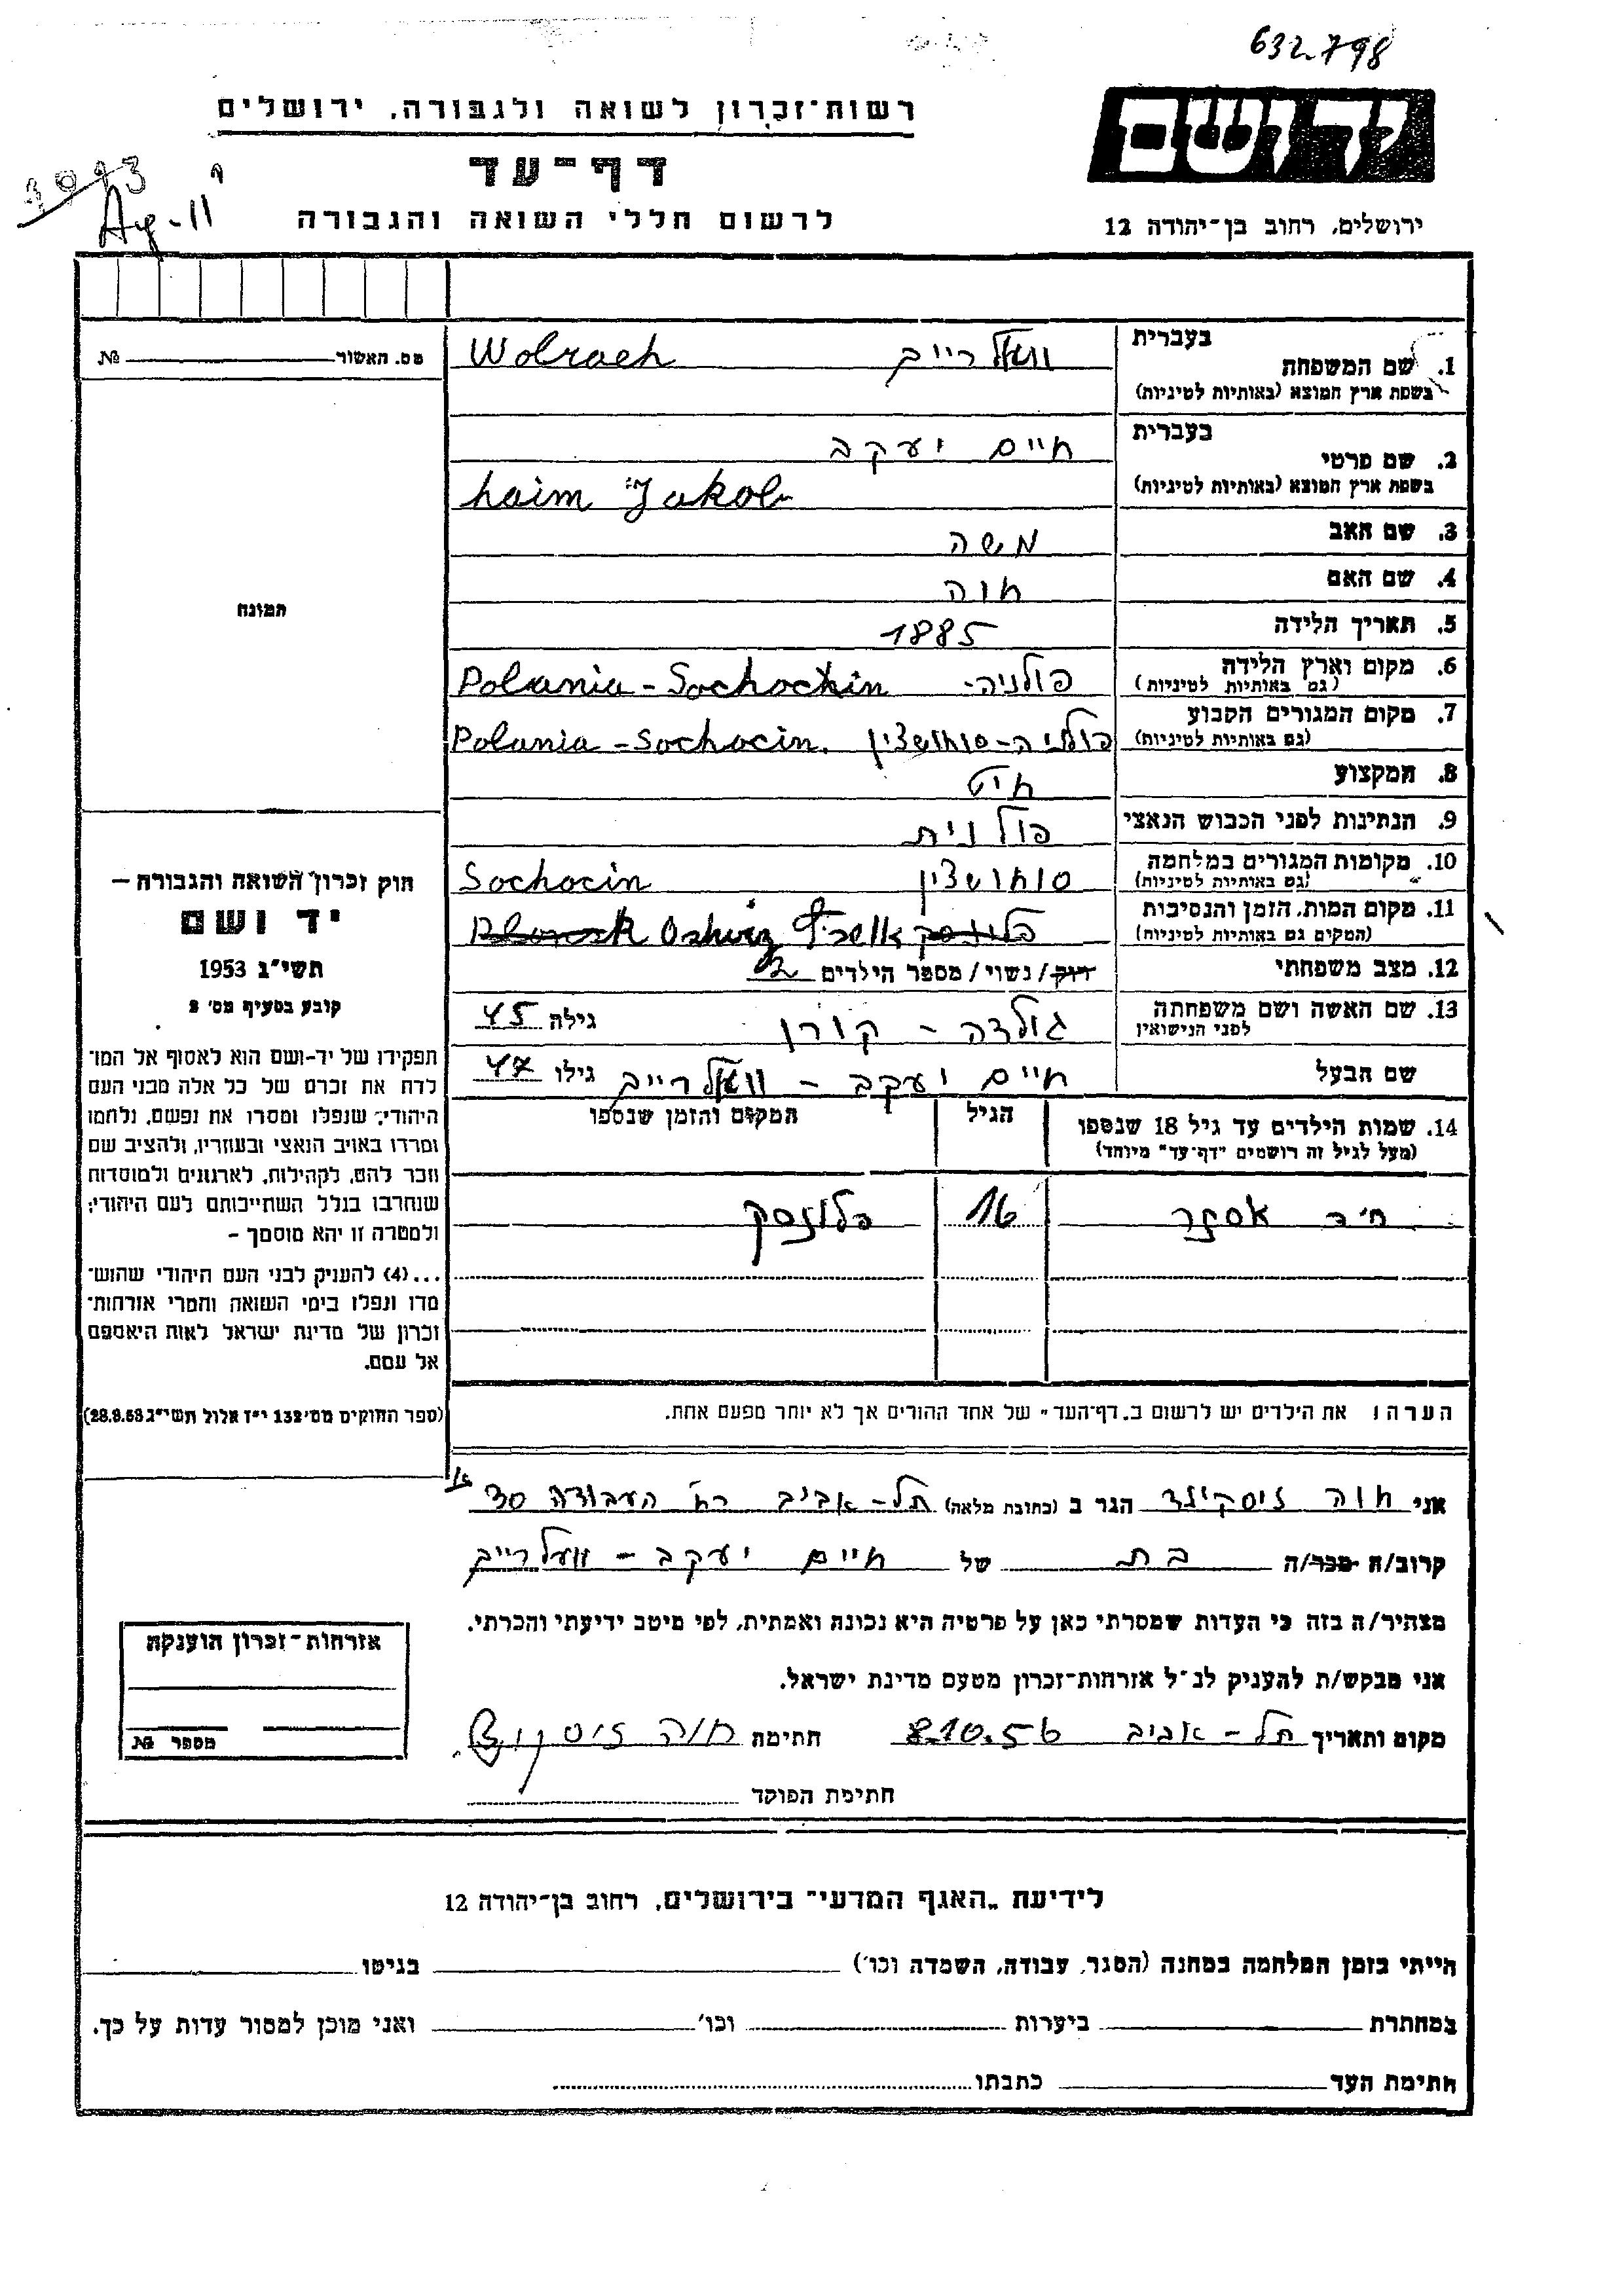 632.798
רשות־זכרון לשואה ולגבורה, ירושלים
ידושם
דף־עד
לרשום חללי השואה והגבורה
ירושלים, רחוב בן־יהודה 12
בעברית
1. שם המשפחה וואלרייב Wolraeh
בשפת ארץ המוצא (באותיות לטיניות)
מס. האשור №
בעברית
2. שם פרטי חיים יעקב
בשפת ארץ המוצא (באותיות לטיניות) haim Jakob
3. שם האב משה
4. שם האם חוה
התמונה
5. תאריך הלידה 1885
6. מקום וארץ הלידה פולניה- Polania - Sochochin
(גם באותיות לטיניות)
7. מקום המגורים הקבוע פולניה-סוחושצין Polania - Sochocin.
(גם באותיות לטיניות)
8. המקצוע חיט
9. הנתינות לפני הכבוש הנאצי פולנית
10. מקומות המגורים במלחמה סוחושצין Sochocin
(גם באותיות לטיניות)
11. מקום המות, הזמן והנסיבות פלונסק
(המקום גם באותיות לטיניות)
12. מצב משפחתי רווק/נשוי/מספר הילדים 2
13. שם האשה ושם משפחתה גולדה - קורן גילה 45
לפני הנישואין
שם הבעל חיים יעקב - וואלרייב גילו 47
14. שמות הילדים עד גיל 18 שנספו הגיל המקום והזמן שנספו
(מעל לגיל זה רושמים "דף־עד" מיוחד)
אסתר 16 פלונסק
חוק זכרון השואה והגבורה —
יד ושם
תשי"ג 1953
קובע בסעיף מס' 2
תפקידו של יד-ושם הוא לאסוף אל המו־
לדת את זכרם של כל אלה מבני העם
היהודי, שנפלו ומסרו את נפשם, נלחמו
ומרדו באויב הנאצי ובעוזריו, ולהציב שם
וזכר להם, לקהילות, לארגונים ולמוסדות
שנחרבו בגלל השתייכותם לעם היהודי;
ולמטרה זו יהא מוסמך -
...(4) להעניק לבני העם היהודי שהוש־
מדו ונפלו בימי השואה והמרי אזרחות־
זכרון של מדינת ישראל לאות היאספם
אל עמם.
(ספר החוקים מס' 132 י"ז אלול תשי"ג 28.8.53)
הערה: את הילדים יש לרשום ב„דף־העד" של אחד ההורים אך לא יותר מפעם אחת.
אני חוה זיסקינד הגר ב (כתובת מלאה) תל-אביב רח' העבודה 30
קרוב/ה מכר/ה בת של חיים יעקב - וואלרייב
מצהיר/ה בזה כי העדות שמסרתי כאן על פרטיה היא נכונה ואמתית, לפי מיטב ידיעתי והכרתי.
אני מבקש/ת להעניק לנ"ל אזרחות־זכרון מטעם מדינת ישראל.
מקום ותאריך תל-אביב 8.10.56 חתימה חוה זיסקינד
חתימת הפוקד
אזרחות־זכרון הוענקה
מספר №
לידיעת „האגף המדעי" בירושלים, רחוב בן־יהודה 12
הייתי בזמן המלחמה במחנה (הסגר, עבודה, השמדה וכו') בגיטו
במחתרת ביערות וכו' ואני מוכן למסור עדות על כך.
חתימת העד כתבתו